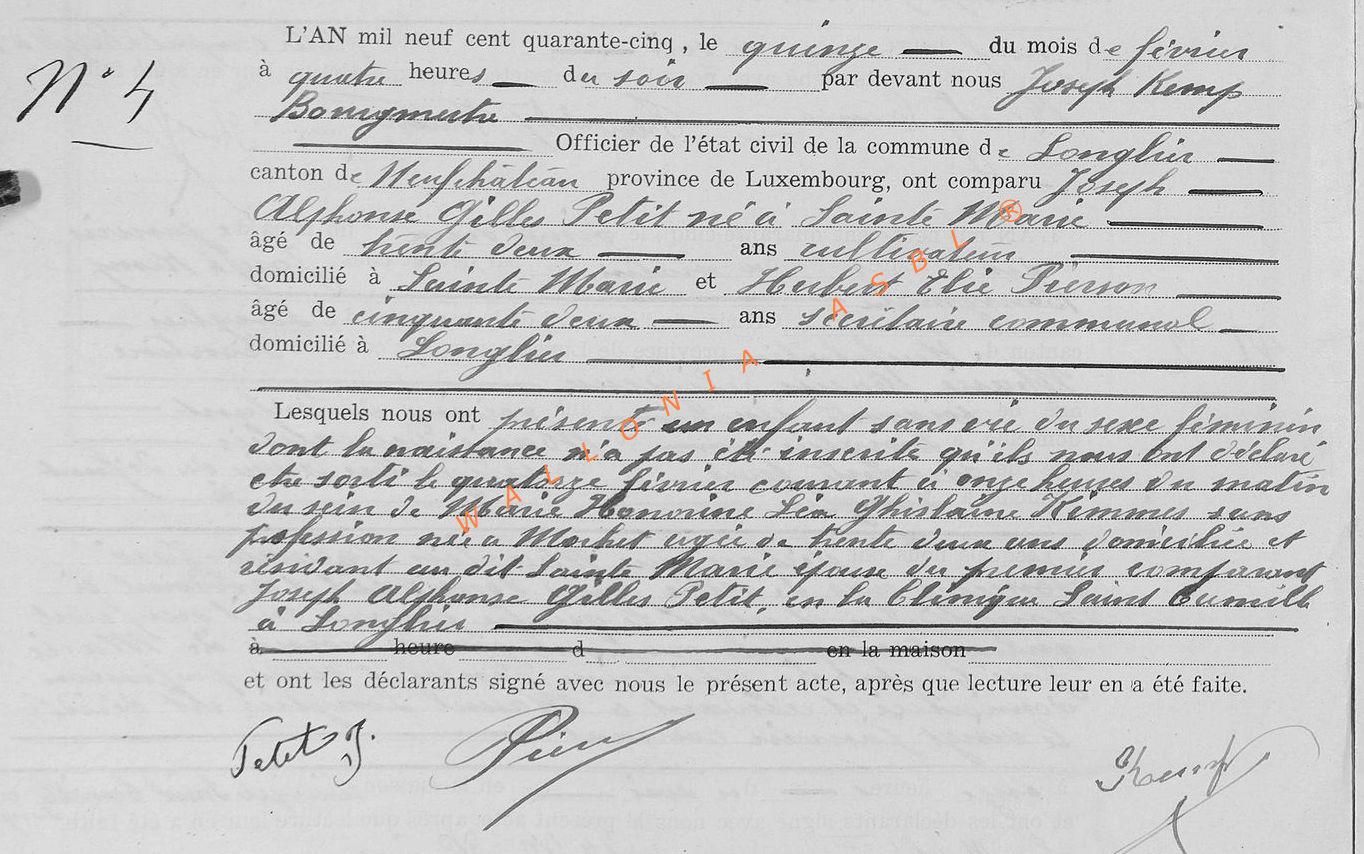 L'AN mil neuf cent quarante-cinq, le quinze du mois de février
N° 4
à quatre heures du soir par devant nous Joseph Kemp
Bourgmestre
Officier de l'état civil de la commune de Longlier
canton de Neufchâteau province de Luxembourg, ont comparu Joseph
Alphonse Gilles Petit né à Sainte Marie
âgé de trente deux ans cultivateur
domicilié à Sainte Marie et Hubert Elie Pierson
âgé de cinquante deux ans secrétaire communal
domicilié à Longlier
Lesquels nous ont présenté un enfant sans vie du sexe féminin
dont la naissance n'a pas été inscrite qu'ils nous ont déclaré
etre sorti le quatorze février courant à onze heures du matin
du sein de Marie Honorine Léa Ghislaine Kimmes sans
profession née à Morhet agée de trente deux ans domiciliée et
résidant au dit Sainte Marie épouse du premier comparant
Joseph Alphonse Gilles Petit, en la Clinique Saint Camille
à Longlier
à heure d en la maison
et ont les déclarants signé avec nous le présent acte, après que lecture leur en a été faite.
Petit J. Kemp
WALLONIA ASBL ®